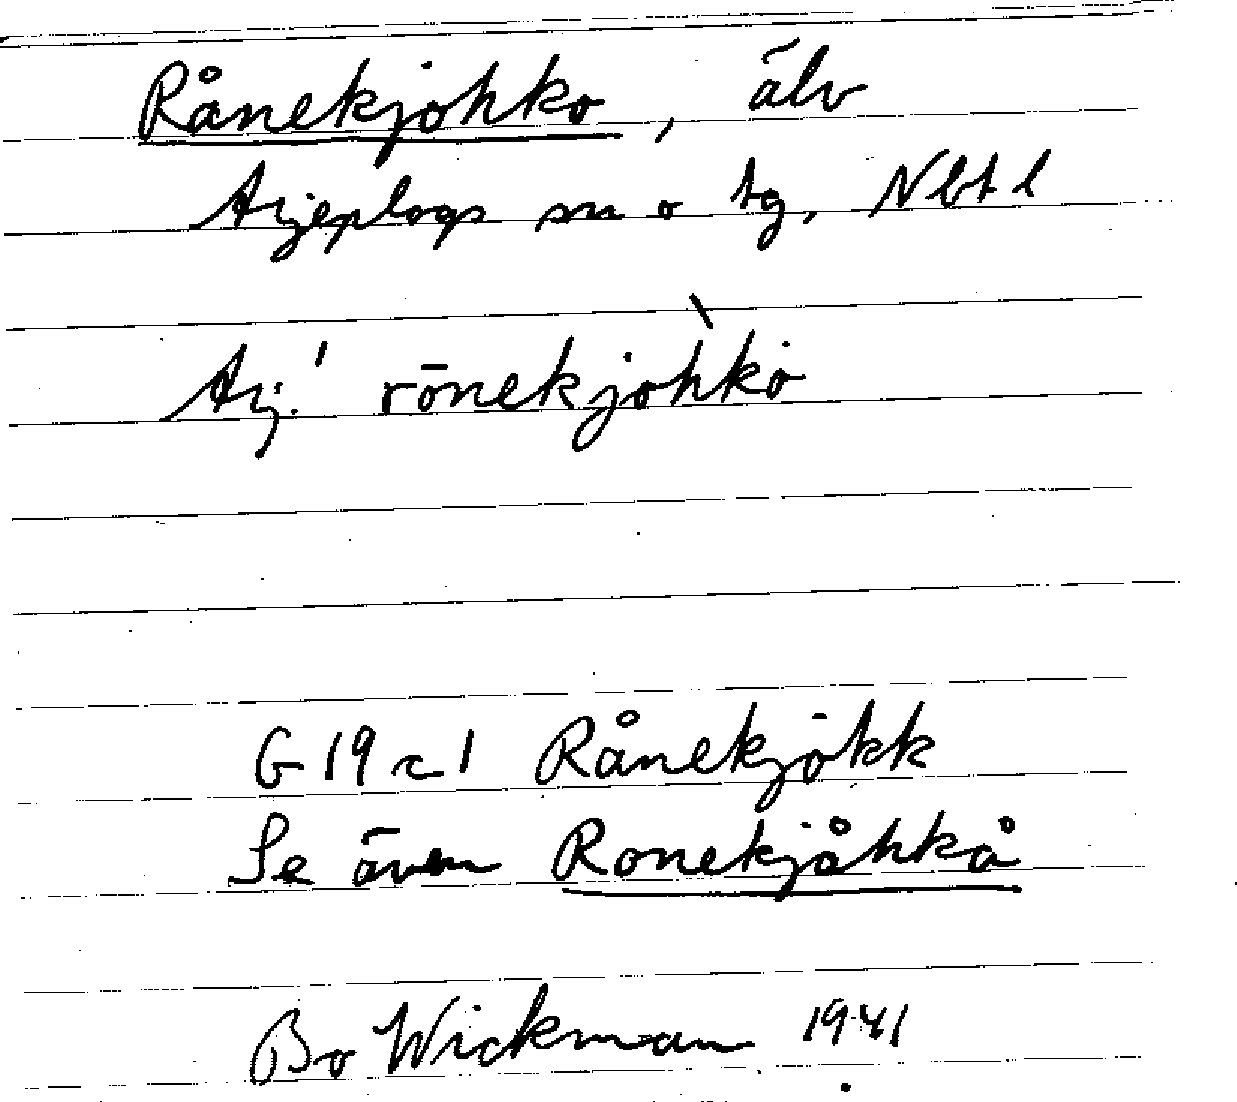 Rånekjohko, älv
Arjeplogs sn o tg, Nbt l
Arj.' rōnekjòhko
G 19 c 1 Rånekjokk
Se även Ronekjåhkå
Bo Wickman 1941